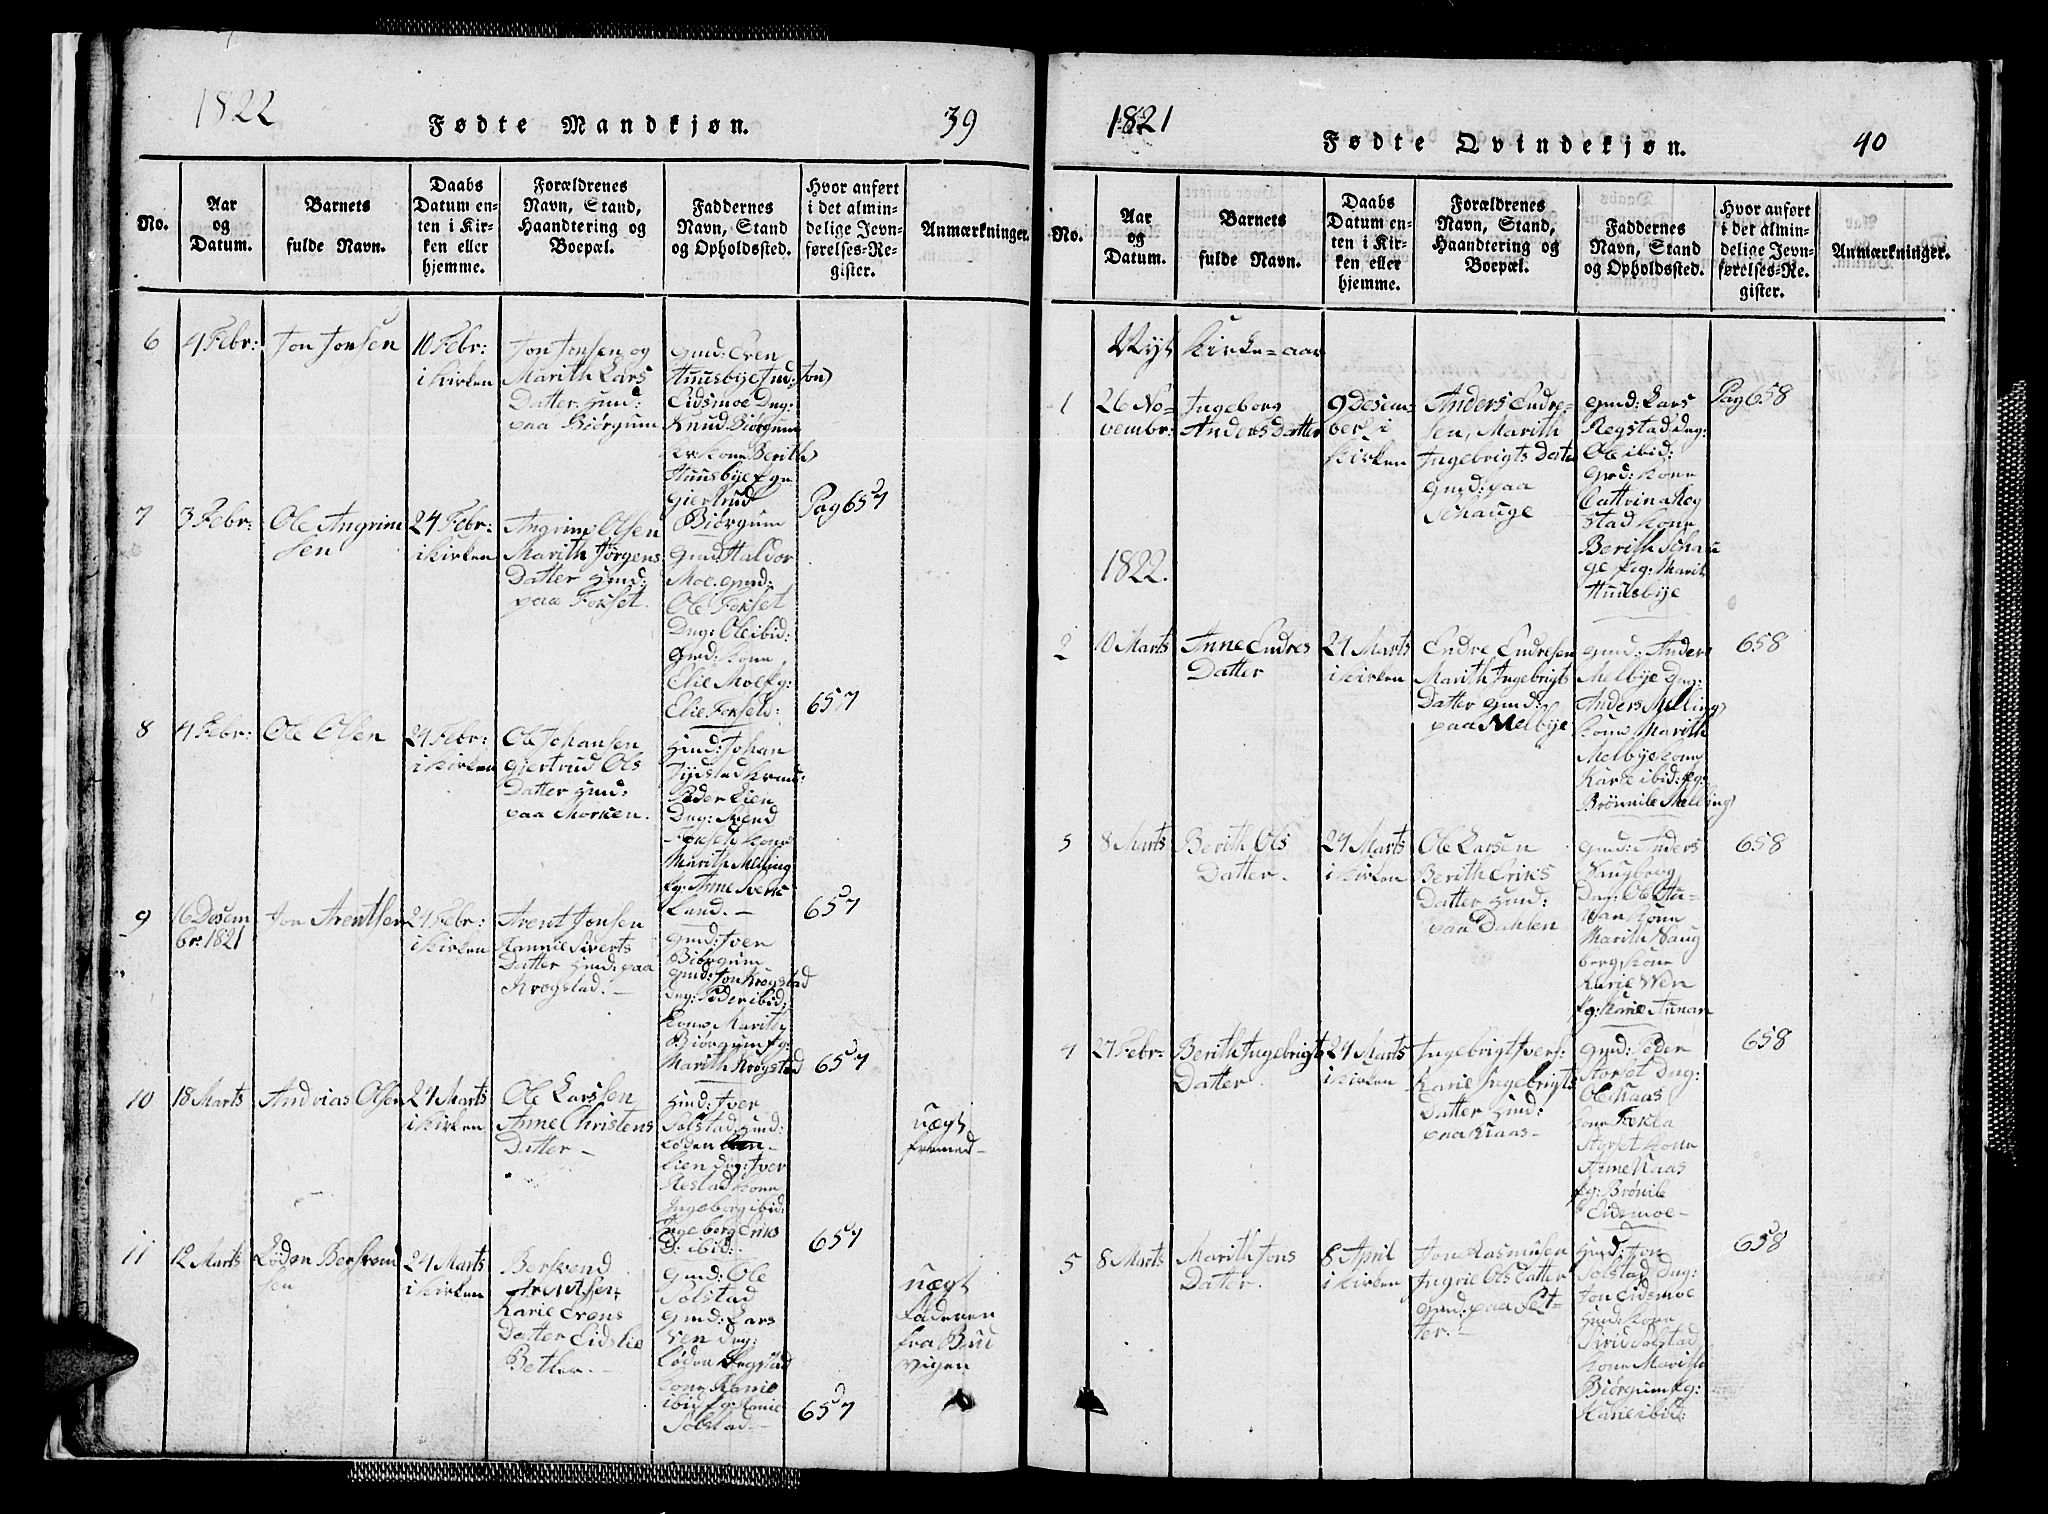 1822
Fødte Mandkjøn.
39
No.
Aar
og
Datum.
Barnets
fulde Navn.
Daabs
Datum en-
ten i Kir-
ken eller
hjemme.
Forældrenes
Navn, Stand,
Haandtering og
Boepæl.
Faddernes
Navn, Stand
og Opholdssted.
Hvor anført
i det almin-
delige Jevn-
førelses-Re-
gister.
Anmærkninger.
6
4 Febr:
Jon Jonsen
10 Febr:
i Kirken
Jon Jonsen og
Marith Lars
Datter Hmd:
paa Biørgum
Gmd: Even
Huusbye Ind: Jon
Eidsmoe Dug:
Knud Biørgum
Kone Berith
Huusbye f g:
Giertrud
Biørgum
Pag 657
7
3 Febr:
Ole Angrim
sen
24 Febr:
i Kirken
Angrim Olsen
Marith Jørgens
Datter Hmd:
paa Forset.
Gmd: Haldor
Moe. Gmd:
Ole Forset
Dug: Ole ibid:
Gmd: Kone
Elie Moe fg:
Elie Forseth:
657
8
4 Febr:
Ole Olsen
24 Febr:
i Kirken
Ole Johansen
Giertrud Ols
Datter Hmd:
paa Morken.
Hmd: Johan
Peder Lien
Dug:
Forseth Kone
Marith Melling
fg: Anne
Land. —
657
9
16 Desem
br: 1821
Jon Arentsen
24 Febr:
i Kirken
Arent Jonsen
Siverts
Datter Hmd: paa
Krogstad. —
Gmd: Iver
Biørgum
Gmd: Jon Krogstad
Dug: Peder ibid:
Kone Marith
Biørgum fg:
Marith Krogstad
657
10
18 Marts
Andrias Olsen
24 Marts
i Kirken
Ole Larssen
Anne Christens
Datter —
Hmd: Iver
Solstad Hmd:
Løden
Lien Dug: Iver
Restad Kone
Ingeborg ibid:
Ingeborg Eriks
D: ibid:
657
uægt
fremed —
11
12 Marts
Løden Bersvend
sen
24 Marts
i Kirken
Bersvend
Arntsen,
Karie Evens
Datter Eidslie
Betler. —
Gmd: Ole
Solstad
Gmd: Lars
Ven Dug:
Løden Regstad
Kone Karrie
ibid fg: Karrie
Solstad —
657
uægt
faderen
fra Bud
vigen
1821
Fødte Qvindekjøn.
40
No.
Aar
og
Datum.
Barnets
fulde Navn.
Daabs
Datum en-
ten i Kir-
ken eller
hjemme.
Forældrenes
Navn, Stand,
Haandtering og
Boepæl.
Faddernes
Navn, Stand
og Opholdssted.
Hvor anført
i det almin-
delige Jevn-
førelses-Re-
gister.
Anmærkninger.
Nyt Kirke-aar
1
26 No-
vembr:
Ingeborg
Anders Datter
9 Desem
ber i
Kirken
Anders Endre-
sen, Marith
Ingebrigts Datter
Gmd: paa
Schauge
Gmd: Lars
Regstad Dug:
Ole ibid:
Gmd: Kone
Cattrina Reg
stad Kone
Berith Schau
ge fg: Marit
Huusbye
Pag 658
1822.
2
10 Marts
Anne Endres
Datter
24 Marts
i Kirken
Endre Endresen
Marith Ingebrigts
Datter Gmd:
paa Melbye
Gmd: Anders
Melbye Dug:
Anders Melling
Kone Marith
Melbye Kone
Karie ibid: fg:
Brønnile Melling
658
3
8 Marts
Berith Ols
Datter.
24 Marts
i Kirken
Ole Larsen
Berith Eriks
Datter Hmd:
paa Dahlen
Gmd: Anders
Haugberg
Dug: Ole Au-
nan Kone
Marith Haug
berg, Kone
Karie Wen
fg: Karie Aunan
658
4
27 Febr:
Berith Ingebrigts
Datter.
24 Marts
i Kirken
Ingebrigt Ivers:
Karie Ingebrigts
Datter Hmd:
paa Kaas —
Gmd: Peder
Storset Dug:
Ole Kaas
Kone Tøkla
Storset Kone
Anne Kaas
fg: Brønile
Eidsmoe —
658
5
8 Marts
Marith Jons
Datter.
8 April
i Kirken
Jon Rasmusen
Ingrie Ols Datter
Gmd: paa Set-
ter. —
Hmd: Jon
Solstad, Dug:
Jon Eidsmoe
Hmd: Kone
Sirid Solstad
Kone Marith
Biørgum fg:
Karie ibid:
658